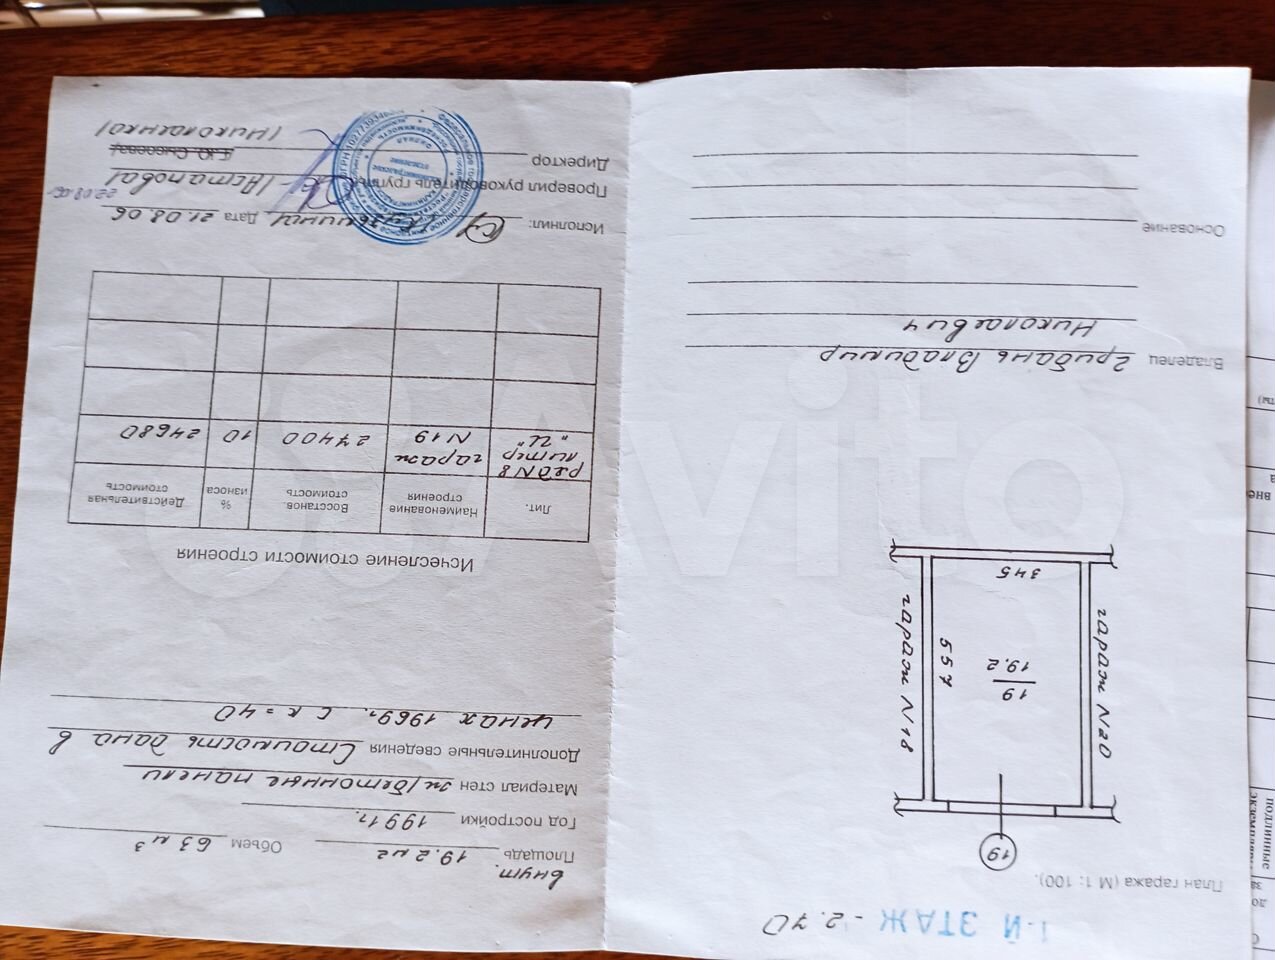 1-Й ЭТАЖ - 2.70
План гаража (М 1: 100).
19
гараж N20
19
19.2
557
гараж N18
345
Владелец Грибань Владимир
Николаевич
Основание
внут.
Площадь 19.2 м2 Объем 63 м3
Год постройки 1991г.
Материал стен ж/бетонные панели
Дополнительные сведения Стоимость дана в
ценах 1969г. с к=40
Исчесление стоимости строения
Лит. Наименование строения Восстанов. стоимость % износа Действительная стоимость
ряд N8 литер "И" гараж N19 27400 10 24680
Исполнил: Кузьмина Дата 21.08.06
Проверил руководитель группы (Астапова) 22.08.06
Директор
(Николаенко)
Avito